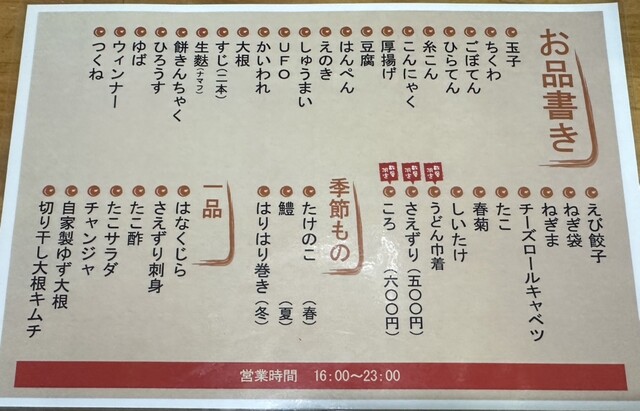 お品書き
玉子
ちくわ
ごぼてん
ひらてん
糸こん
こんにゃく
厚揚げ
豆腐
はんぺん
えのき
しゅうまい
UFO
かいわれ
大根
すじ(二本)
生麩(ナマフ)
餅きんちゃく
ひろうす
ゆば
ウィンナー
つくね
えび餃子
ねぎ袋
ねぎま
チーズロールキャベツ
たこ
春菊
しいたけ
うどん巾着
さえずり(五〇〇円)
ころ(六〇〇円)
季節もの
たけのこ(春)
鱧(夏)
はりはり巻き(冬)
一品
はなくじら
さえずり刺身
たこ酢
たこサラダ
チャンジャ
自家製ゆず大根
切り干し大根キムチ
営業時間 16:00〜23:00